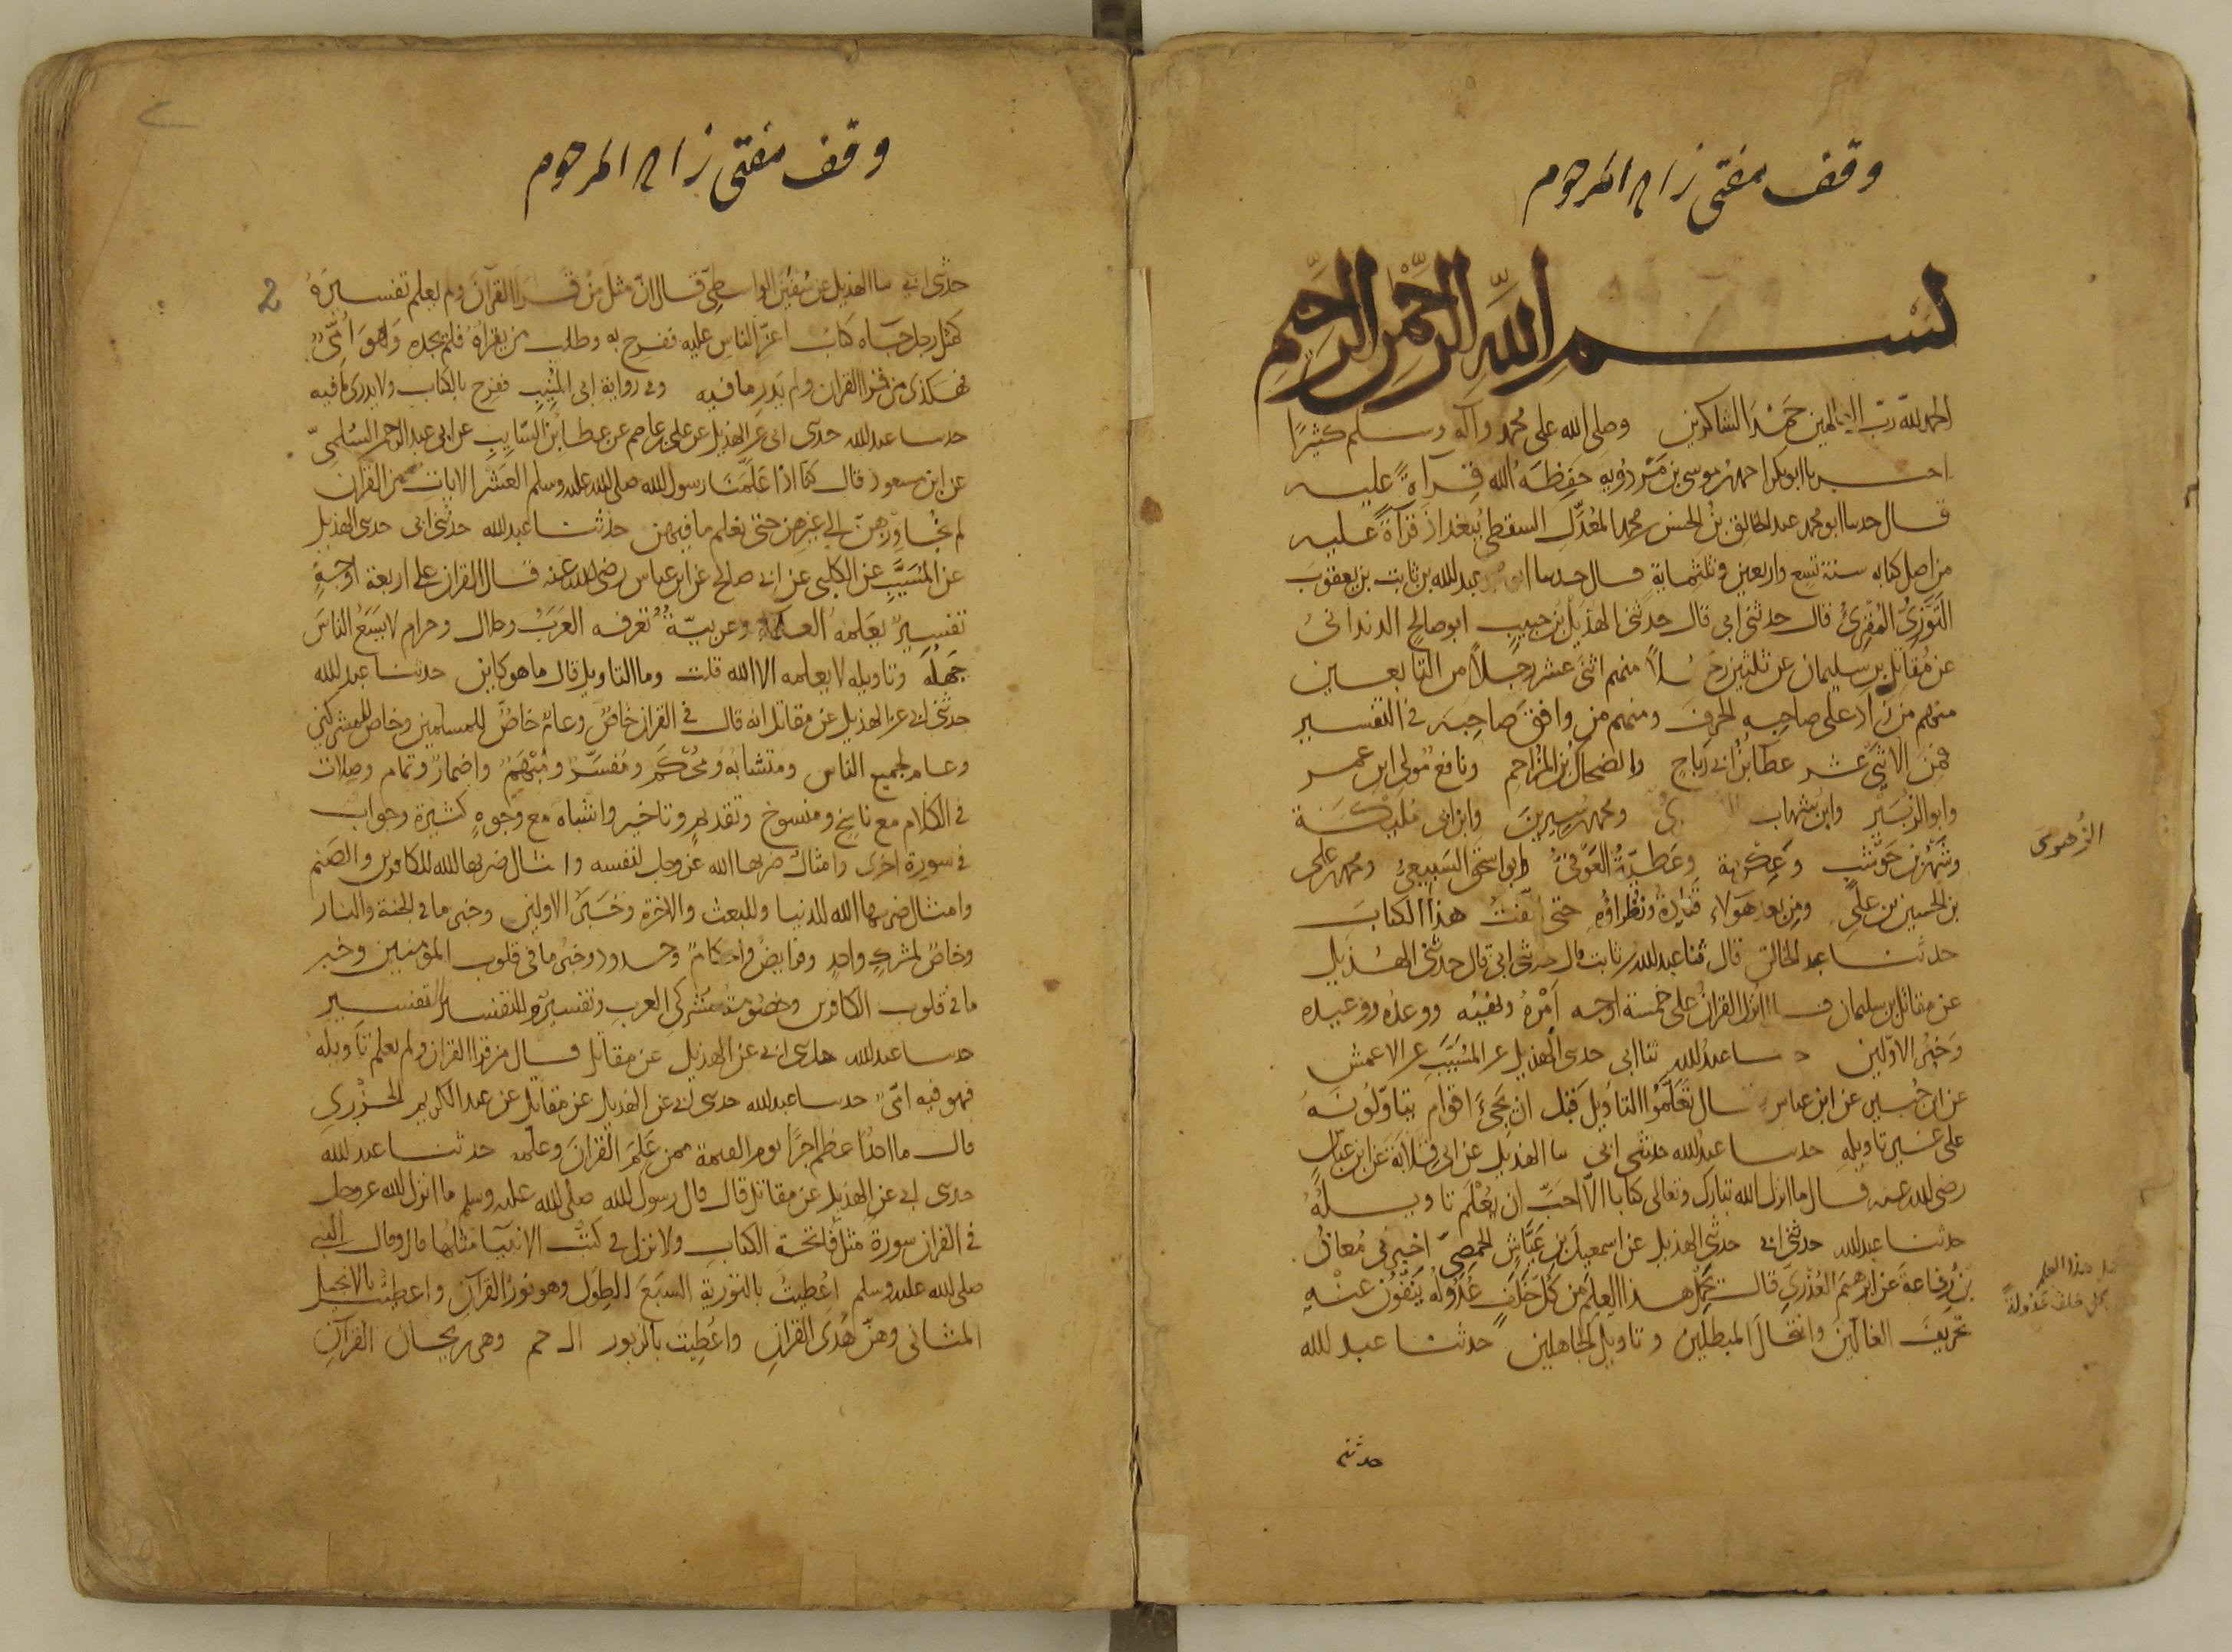 وقف مفتى زاده المرحوم
بسم الله الرحمن الرحيم
الحمد لله رب العالمين حَمْدَ الشاكرين وصلى الله على محمد وآله وسلم كثيرًا
احبرنا ابو بكر احمد بن موسى بن مَرْدُويه حَفِظَهُ الله قِرآةً عليه
قال حدثنا ابو محمد عبد الخالق بنُ الحسن بن محمد المُعَدَّل السقطى ببغداذ قرآةً عليه
من اصل كتابه سنة تسع واربعين وثلثماية قال حدثنا عبد الله بن ثابت بن يعقوب
التَوَّزِىُّ المُقْرِىُ قال حدثنى ابى قال حدثنى الهُذَيل بن حبيب ابو صالح الدندانى
عن مُقاتِل بن سليمان عن ثلثين رجُلاً منهم اثنى عشر رجلًا من التابعين
منهم من زاد على صاحبه الحرفَ ومنهم من وافق صاحِبَه فى التفسير
فمن الاثنى عشر عطا بنُ ابى رَبَاحٍ والضحاك بن المُزاحِم ونافع مَولى ابن عمر
وابو الزُبَيْر وابن شهاب ومحمد بن سيرين وابن ابى مليكة
الزُهرى
وشَهْر بن حَوْشَب وعِكْرِمة وعَطِيّةُ العَوْفىُّ وابو اسحق السَبِيعىُّ ومحمد بن على
بن الحسين بن علىٍّ ومِن بعد هَولاءِ قَتَادَةُ ونُظراؤُه حتى الّفتُ هذا الكتابَ
حدثنا عبد الخالق قال ثنا عبد الله بن ثابت قال حدثنى ابى قال حدثنى الهُذيل
عن مقاتل بن سليمان قال انزل القرانُ على خمسة اوجه اَمْرُه ونَهْيُه ووعدُه ووعيده
وخَبَرُ الاوّلين حدثنا عبدُ الله ثنا ابى حدثنى الهُذيل عن المُسَيَّبِ عن الاعمش
عن ابن جُبير عن ابن عباس قال تَعَلّموا التاوِيلَ قَبل ان يَجِىءَ اقوام يتاوّلُونَهُ
على غير تاويله حدثنا عبدُ الله حدثنى ابى ثنا الهُذيل عن ابى قِلابَة عن ابن عباسٍ
رضى الله عنه قال ما انزل الله تبارك وتعالى كتابا الّا اَحَبَّ ان يُعْلَم تاويلُهُ
حدثنا عبد الله حدثنى ابى حدثنى الهذيل عن اسمعيل بن عَيّاشٍ الحِمصِىّ اخبرنى مُعانُ
بنُ رِفاعةَ عن ابرهيم العُذْرِىِّ قال يَحمِل هذا العِلمَ من كُلّ خَلَفٍ عُدُولُهُ يَنْفُون عَنْهُ
هذا العلم
كل خلف عدوله
تحريفَ الغالين وانتحالَ المبطلين وتاويل الجاهلين حدثنا عبد الله
حدثنى
وقف مفتى زاده المرحوم
2
حدثنى ابى ثنا الهذيل عن سُفين الواسِطىّ قال انّ مثل من قرا القرآن ولم يعلم تفسيرَهُ
كمثل رجل جآه كتابٌ اعزّ الناس عليه ففرح به وطلب من يقراُهُ فلم يجده وَهُوَ اُمّىٌّ
فهكذى من قرا القران ولم يَدْرِ ما فيه وفى رواية ابى ففرح بالكتاب ولا يدرى ما فيه
حدثنا عبد الله حدثنى ابى عن الهذيل عن على بن عاصم عن عطا بن السّايب عن ابى عبد الرحمن السُلَمِىّ
عن ابن مسعود قال كنّا اذا عَلّمَنا رسول الله صلى الله عليه وسلم العَشْرَ الايات من القران
لم نُجاوِزهنّ الى غيرهن حتى نعلم ما فيهن حدثنا عبد الله حدثنى ابى حدثنى الهذيل
عن المُسَيَّبِ عن الكلبى عن ابى صالح عن ابن عباس رضى الله عنه قال القران على اربعة اوجهٍ
تفسيرٌ يعلمهُ العلماءُ وعربيّةٌ تعرفه العَرَبُ وحلال وحرام لا يسَعُ الناسَ
جَهلُه وتاويله لا يعلمه الا الله قلت وما التاويل قال ما هو كاين حدثنا عبد الله
حدثنى ابى عن الهذيل عن مقاتل انه قال فى القران خاصٌّ وعامٌّ خاصٌّ للمسلمين وخاص للمشركين
وعام لجميع الناس ومتشابهٌ ومُحْكَمٌ ومُفسَّرٌ ومُبْهَمٌ واضمارٌ وتمام وصِلاتٌ
فى الكلام مع ناسِخٍ ومنسوخ وتقديم وتاخير واشباه مع وُجُوهٍ كثيرة وجواب
فى سورة اخرى وامثالٌ ضربها الله عز وجل لنفسه وامثال ضربها الله للكافرين والصَنم
وامثال ضربها الله للدنيا وللبعث والاخرة وخَبَرُ الاولين وخبر ما فى الجنة والنار
وخاصٌّ لمشركٍ واحدٍ وفرايضُ واحكامٌ وحدود وخبر ما فى قلوب المؤمنين وخبر
ما فى قلوب الكافرين وخصُومةُ مشركى العرب وتفسيرٌ وللتفسير تفسير
حدثنا عبد الله حدثنى ابى عن الهذيل عن مقاتل قال من قرا القران ولم يعلم تاويلهُ
فهو فيه امّىٌّ حدثنا عبد الله حدثنى ابى عن الهذيل عن مقاتل عن عبد الكريم الجَزْرِىّ
قال ما احدٌ اعظم اجرًا يوم القيمة ممن عَلِمَ القُرانَ وعلّمه حدثنا عبد الله
حدثنى ابى عن الهذيل عن مقاتل قال قال رسول الله صلى الله عليه وسلم ما انزل الله عز وجل
فى القران سورةً مثل فاتحة الكتاب ولا نزل فى كتب الانبيآ مثلها قال وقال النبى
صلى الله عليه وسلم اعُطيتُ بالتورية السَبعَ الطِوَل وهو نورُ القرآن واعطيتُ بالانجيل
المثانى وهنّ هُدَى القرانِ واعُطِيت بالزبور ال حم وهى ريحانُ القرآنِ